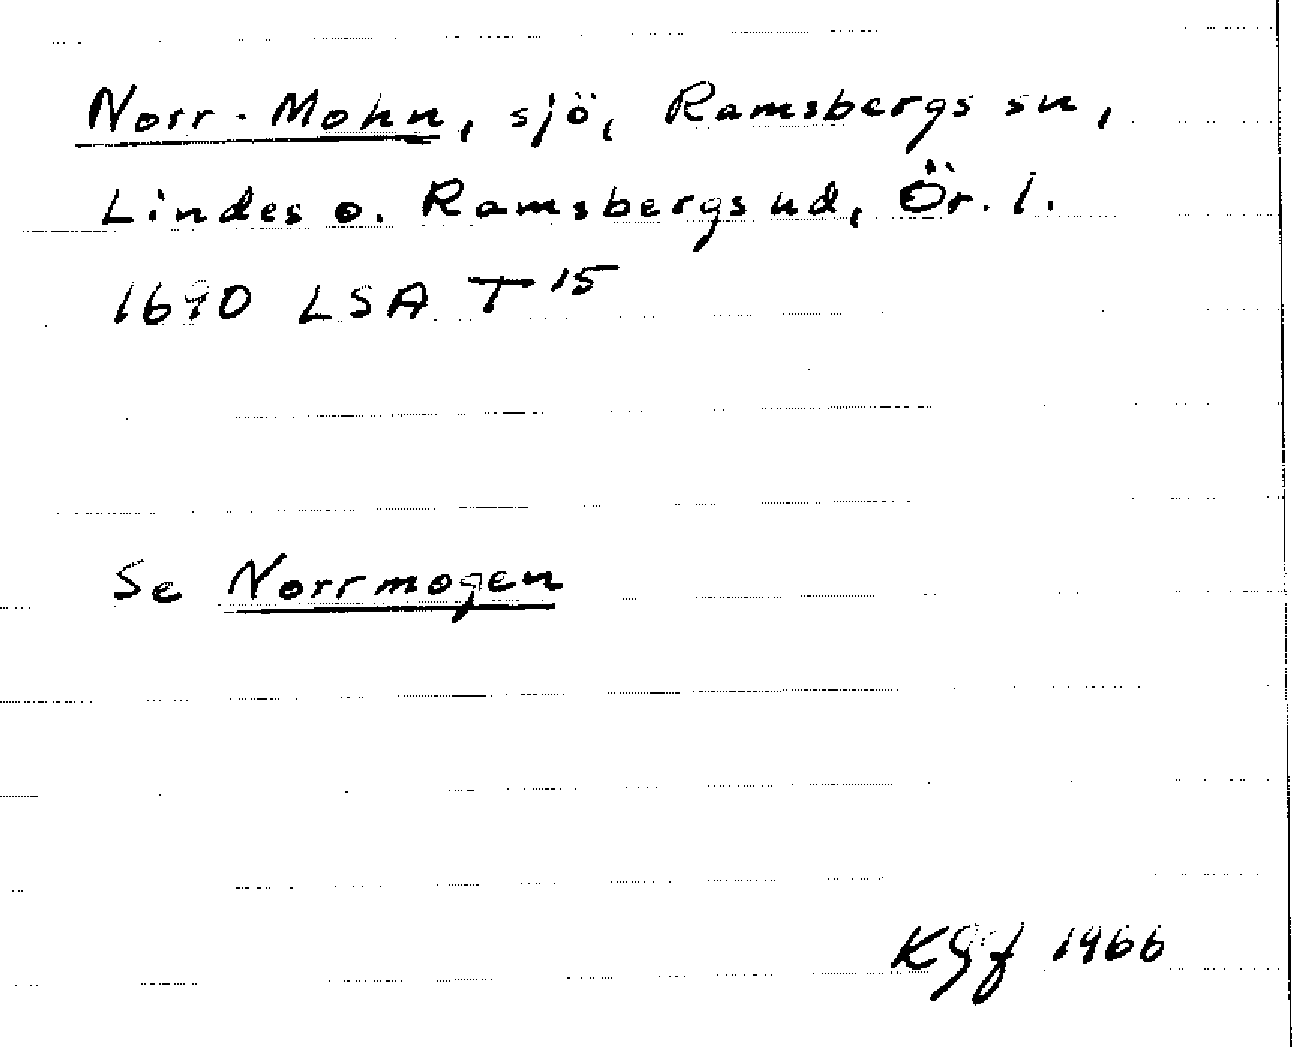 Norr-Mohn, sjö, Ramsbergs sn,
Lindes o. Ramsbergs hd, Ör. l.
1690 LSA T 15
Se Norrmogen
KGf 1966